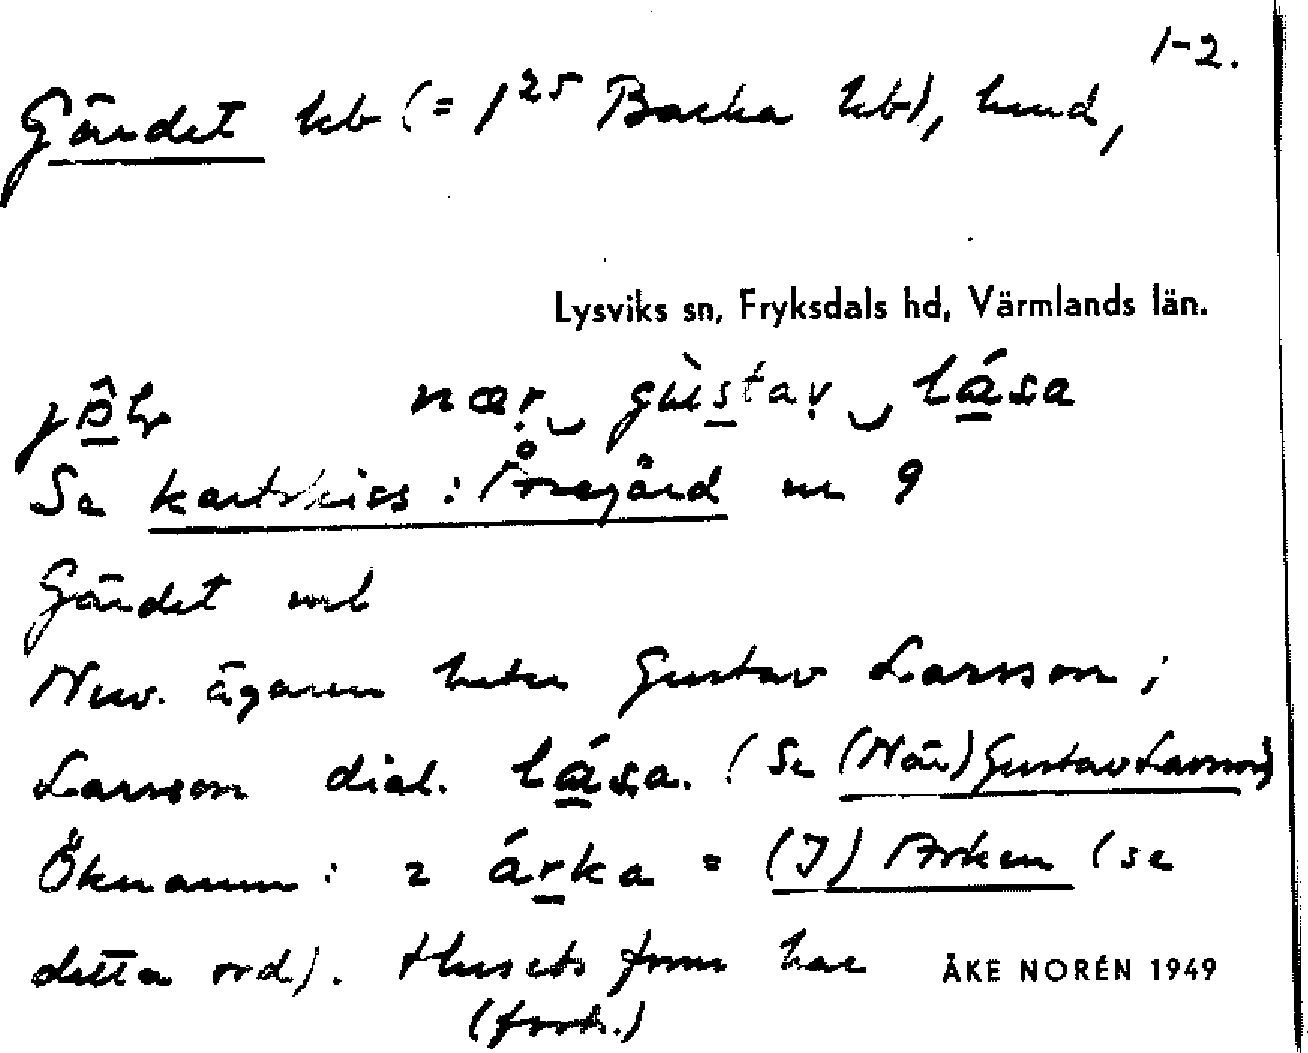 1-2.
Gärdet hb (= 1²⁵ Backa hb), hmd,
Lysviks sn, Fryksdals hd, Värmlands län.
nær gùstav lása
Se kartskiss: Åregård nr 9
Gärdet
Nuv. ägaren heter Gustav Larsson;
Larsson dial. lása. (Se (När) Gustav Larsson)
Öknamn: árka = (I) Arken (se
detta ord). Husets form har
ÅKE NORÉN 1949
(forts.)